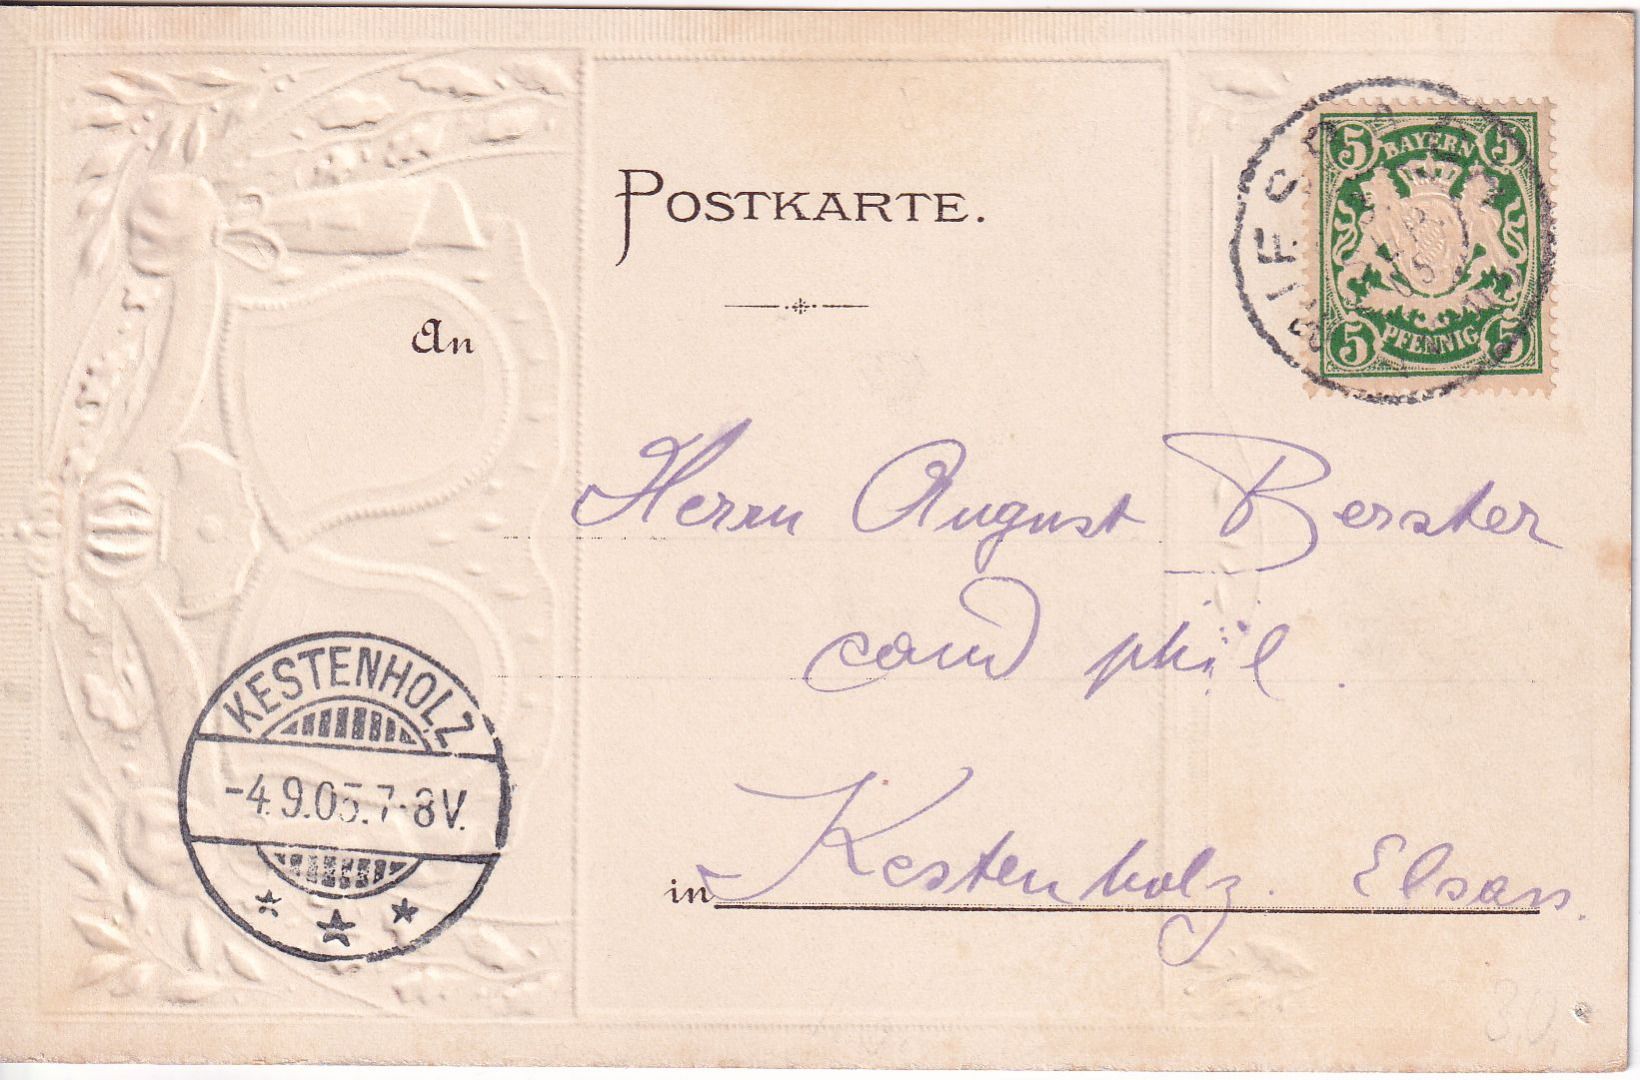 POSTKARTE.
5 BAYERN 5
5 PFENNIG 5
An
Herrn August Berster
cand phil.
in Kestenholz. Elsass.
KESTENHOLZ
-4.9.05.7-8V.
30.